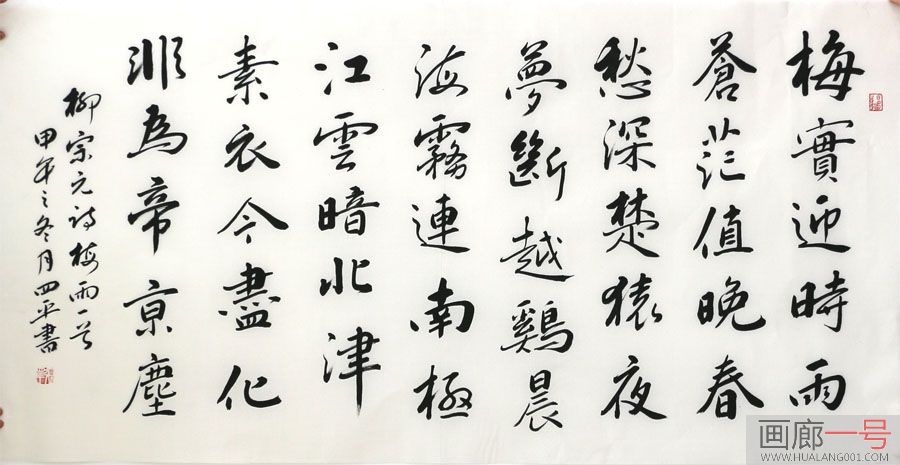 梅實迎時雨
蒼茫值晚春
愁深楚猿夜
夢斷越鷄晨
海霧連南極
江雲暗北津
素衣今盡化
非為帝京塵
柳宗元詩梅雨一首
甲午之冬月四平書
画廊一号
WWW.HUALANG001.COM